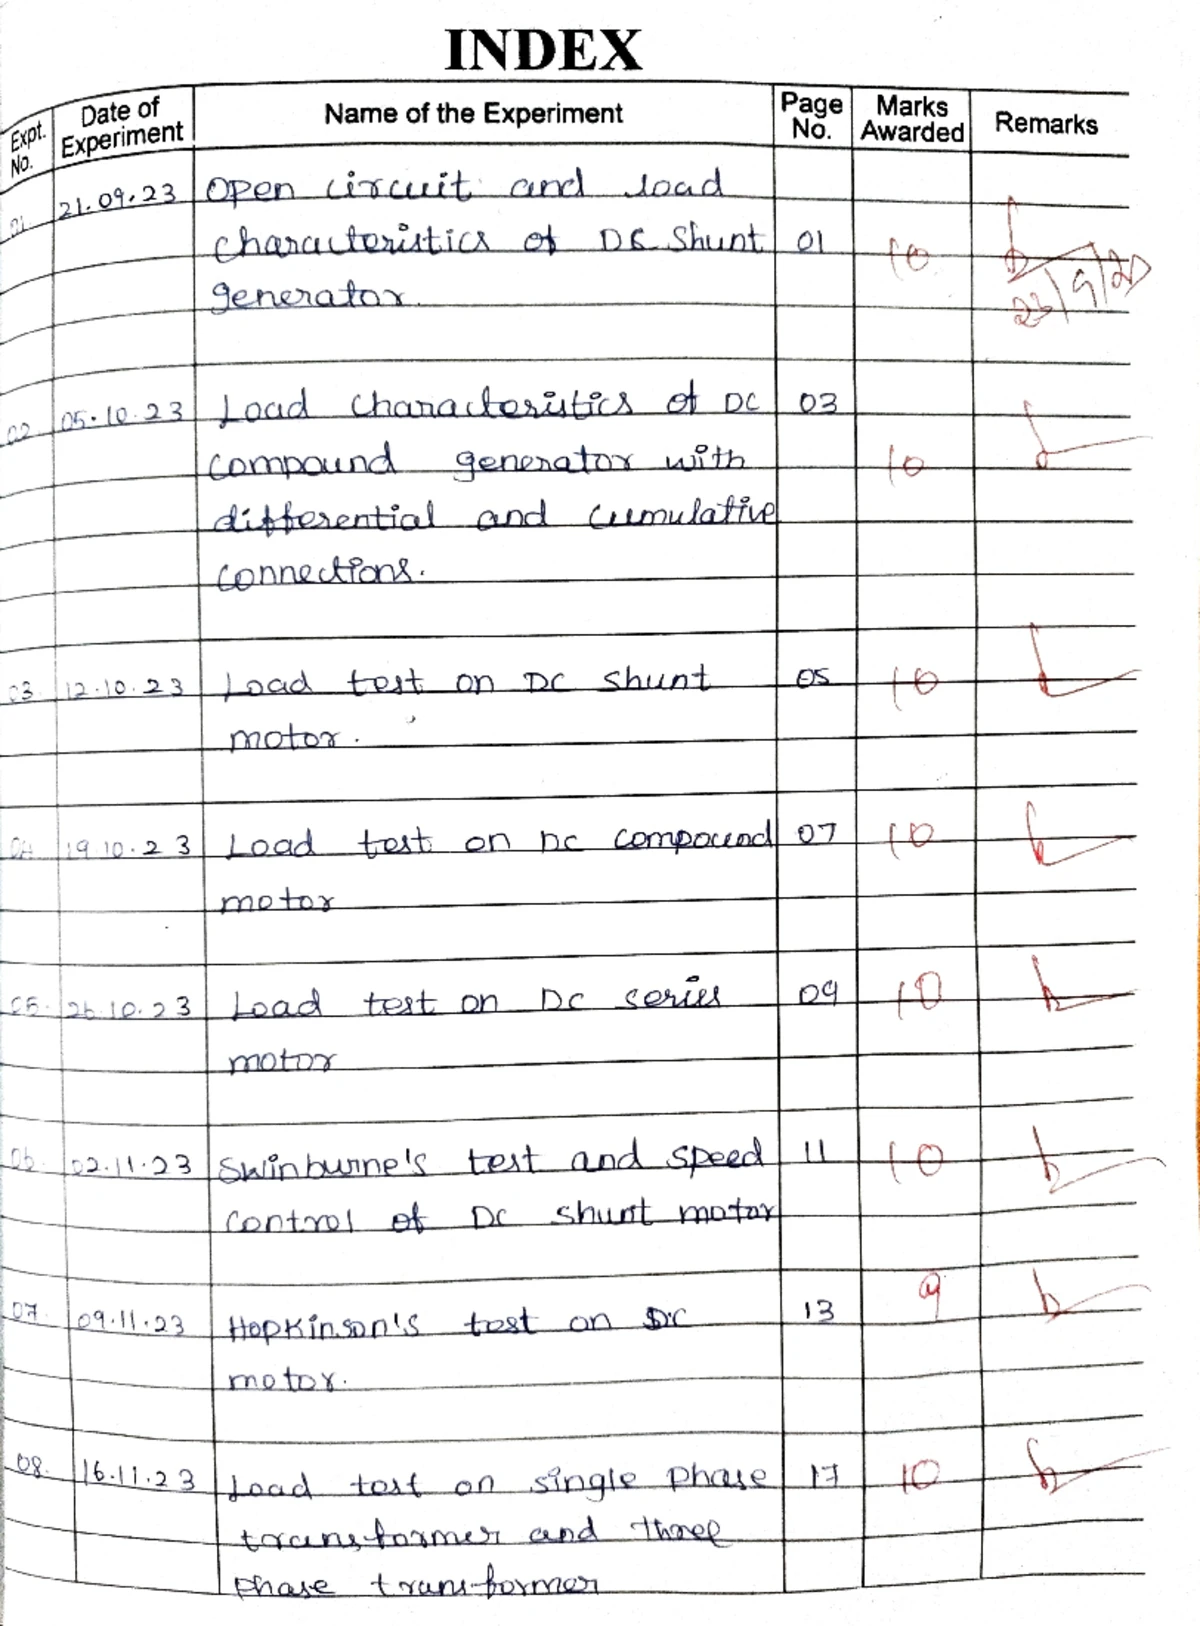 INDEX
Expt. No. Date of Experiment Name of the Experiment Page No. Marks Awarded Remarks
01. 21.09.23 Open circuit and load
characteristics of DC Shunt 01 10
generator. 23/9/23
02. 05.10.23 Load characteristics of DC 03
compound generator with 10
differential and cumulative
connections.
03. 12.10.23 Load test on DC shunt 05 10
motor.
04. 19.10.23 Load test on DC compound 07 10
motor
05. 26.10.23 Load test on DC series 09 10
motor
06. 02.11.23 Swinburne's test and speed 11 10
control of DC shunt motor
07. 09.11.23 Hopkinson's test on DC 13 9
motor.
08. 16.11.23 Load test on single phase 17 10
transformer and three
phase transformer